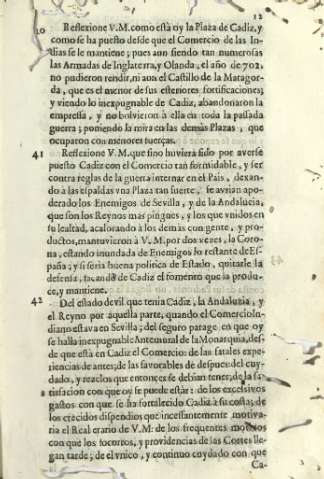 12
40 Reflexione V.M. como està oy la Plaza de Cadiz, y
como se ha puesto desde que el Comercio de las In-
dias se le mantiene; pues aun siendo tan numerosas
las Armadas de Inglaterra, y Olanda, el año de 702,
no pudieron rendir, ni aun el Castillo de la Matagor-
da, que es el menor de sus esteriores fortificaciones;
y viendo lo inexpugnable de Cadiz, abandonaron la
empressa, y no bolvieron à ella en toda la passada
guerra; poniendo la mira en las demàs Plazas, que
ocuparon con menores fuerças.
41 Reflexione V.M. que sino huviera sido por averse
puesto Cadiz con el Comercio tan formidable, y ser
contra reglas de la guerra internar en el Pais, dexan-
do à las espaldas vna Plaza tan fuerte, se avrian apo-
derado los Enemigos de Sevilla, y de la Andalucia,
que son los Reynos mas pingues, y los que vnidos en
su lealtad, acalorando à los demàs con gente, y pro-
ductos, mantuvieron à V.M. por dos vezes, la Coro-
na, estando inundada de Enemigos lo restante de Es-
paña; y si seria buena politica de Estado, quitarle la
defensa, sacando de Cadiz el fomento que la produ-
ce, y mantiene.
42 Del estado devil que tenia Cadiz, la Andaluzia, y
el Reyno por aquella parte, quando el Comercio In-
diano estava en Sevilla; del seguro parage en que oy
se halla inexpugnable Antemural de la Monarquia, des-
de que està en Cadiz el Comercio: de las fatales expe-
riencias de antes; de las favorables de despues: del cuy-
dado, y rezelos que entonces se debian tener; de la sa-
tisfacion con que oy se puede estàr: de los excessivos
gastos con que se ha fortalecido Cadiz à su costa; de
los crecidos dispendios que incessantemente motiva-
ria el Real erario de V.M. de los frequentes motivos
con que los socorros, y providencias de las Cortes lle-
gan tarde; de el vnico, y continuo cuydado con que
Ca-